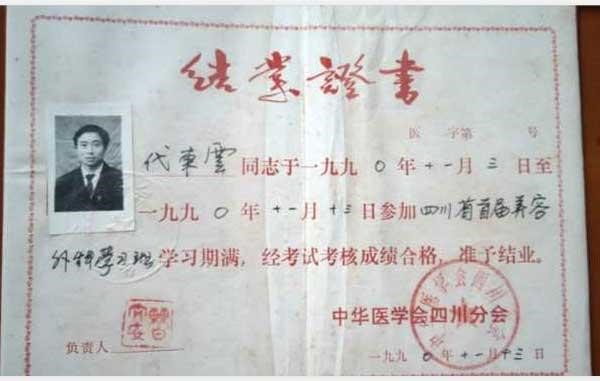 结业證書
医 字第 号
代東雲同志于一九九0年十一月三日至
一九九0年十一月十三日参加四川省首届美容
外科学习班学习期满，经考试考核成绩合格，准予结业。
中华医学会四川分会
负责人
一九九0年十一月十三日
中华医学会四川分会